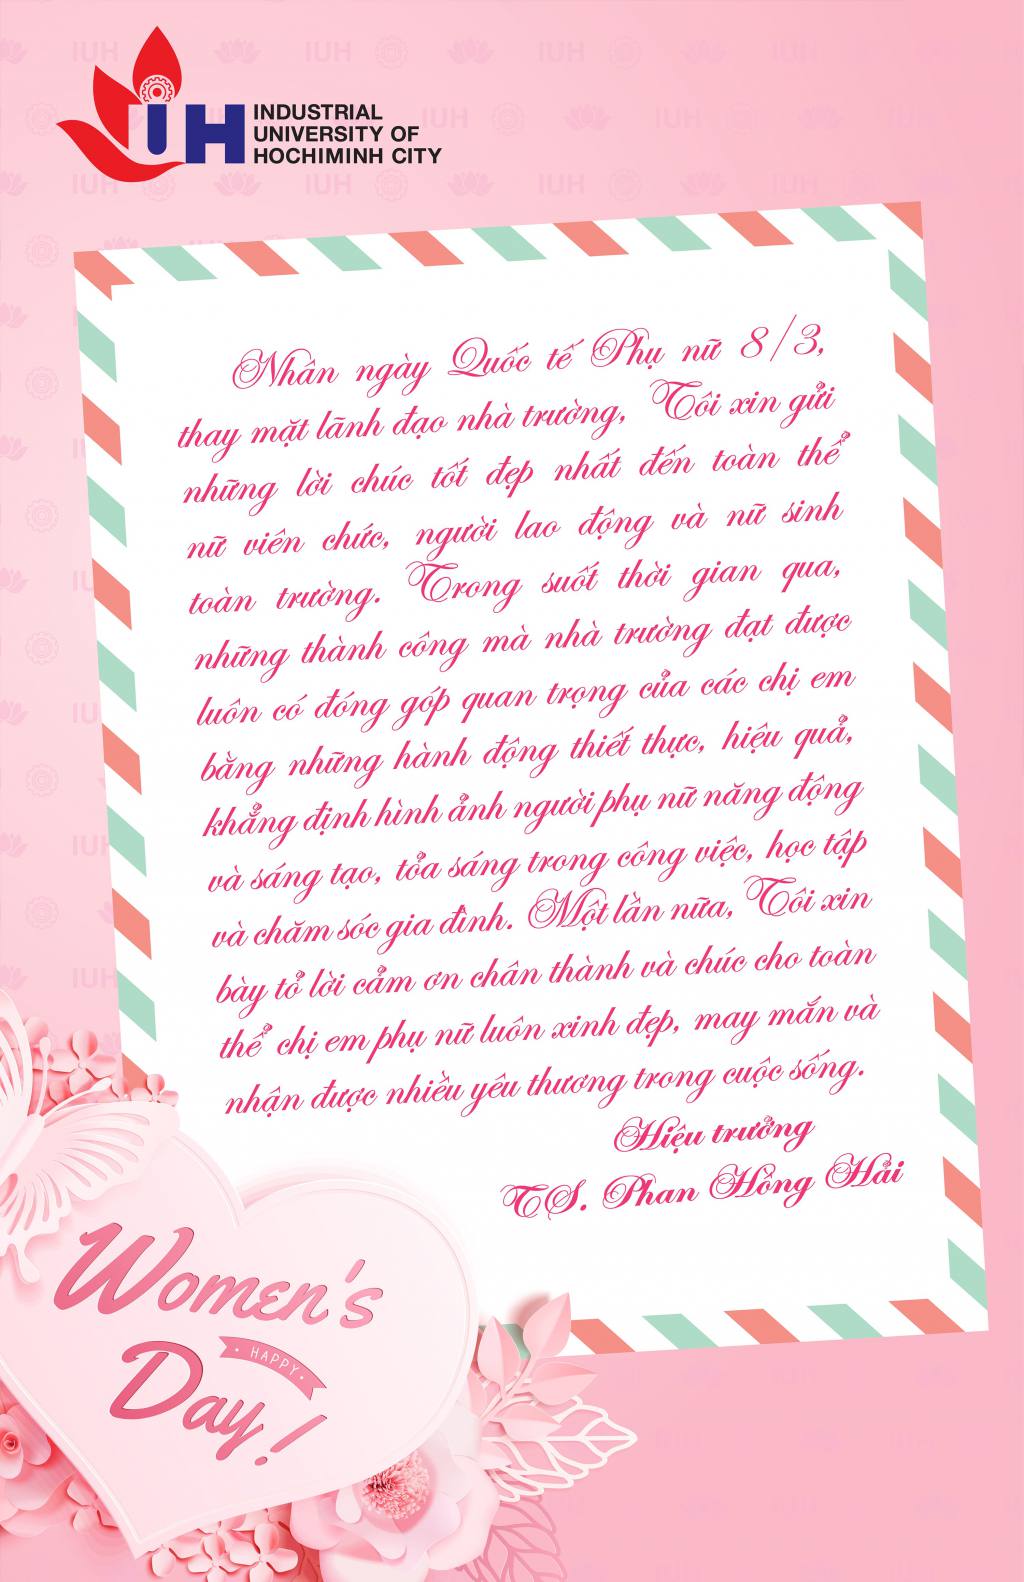 IUH
INDUSTRIAL
UNIVERSITY OF
HOCHIMINH CITY
Nhân ngày Quốc tế Phụ nữ 8/3,
thay mặt lãnh đạo nhà trường, Tôi xin gửi
những lời chúc tốt đẹp nhất đến toàn thể
nữ viên chức, người lao động và nữ sinh
toàn trường. Trong suốt thời gian qua,
những thành công mà nhà trường đạt được
luôn có đóng góp quan trọng của các chị em
bằng những hành động thiết thực, hiệu quả,
khẳng định hình ảnh người phụ nữ năng động
và sáng tạo, tỏa sáng trong công việc, học tập
và chăm sóc gia đình. Một lần nữa, Tôi xin
bày tỏ lời cảm ơn chân thành và chúc cho toàn
thể chị em phụ nữ luôn xinh đẹp, may mắn và
nhận được nhiều yêu thương trong cuộc sống.
Hiệu trưởng
TS. Phan Hồng Hải
Women's
HAPPY
Day!